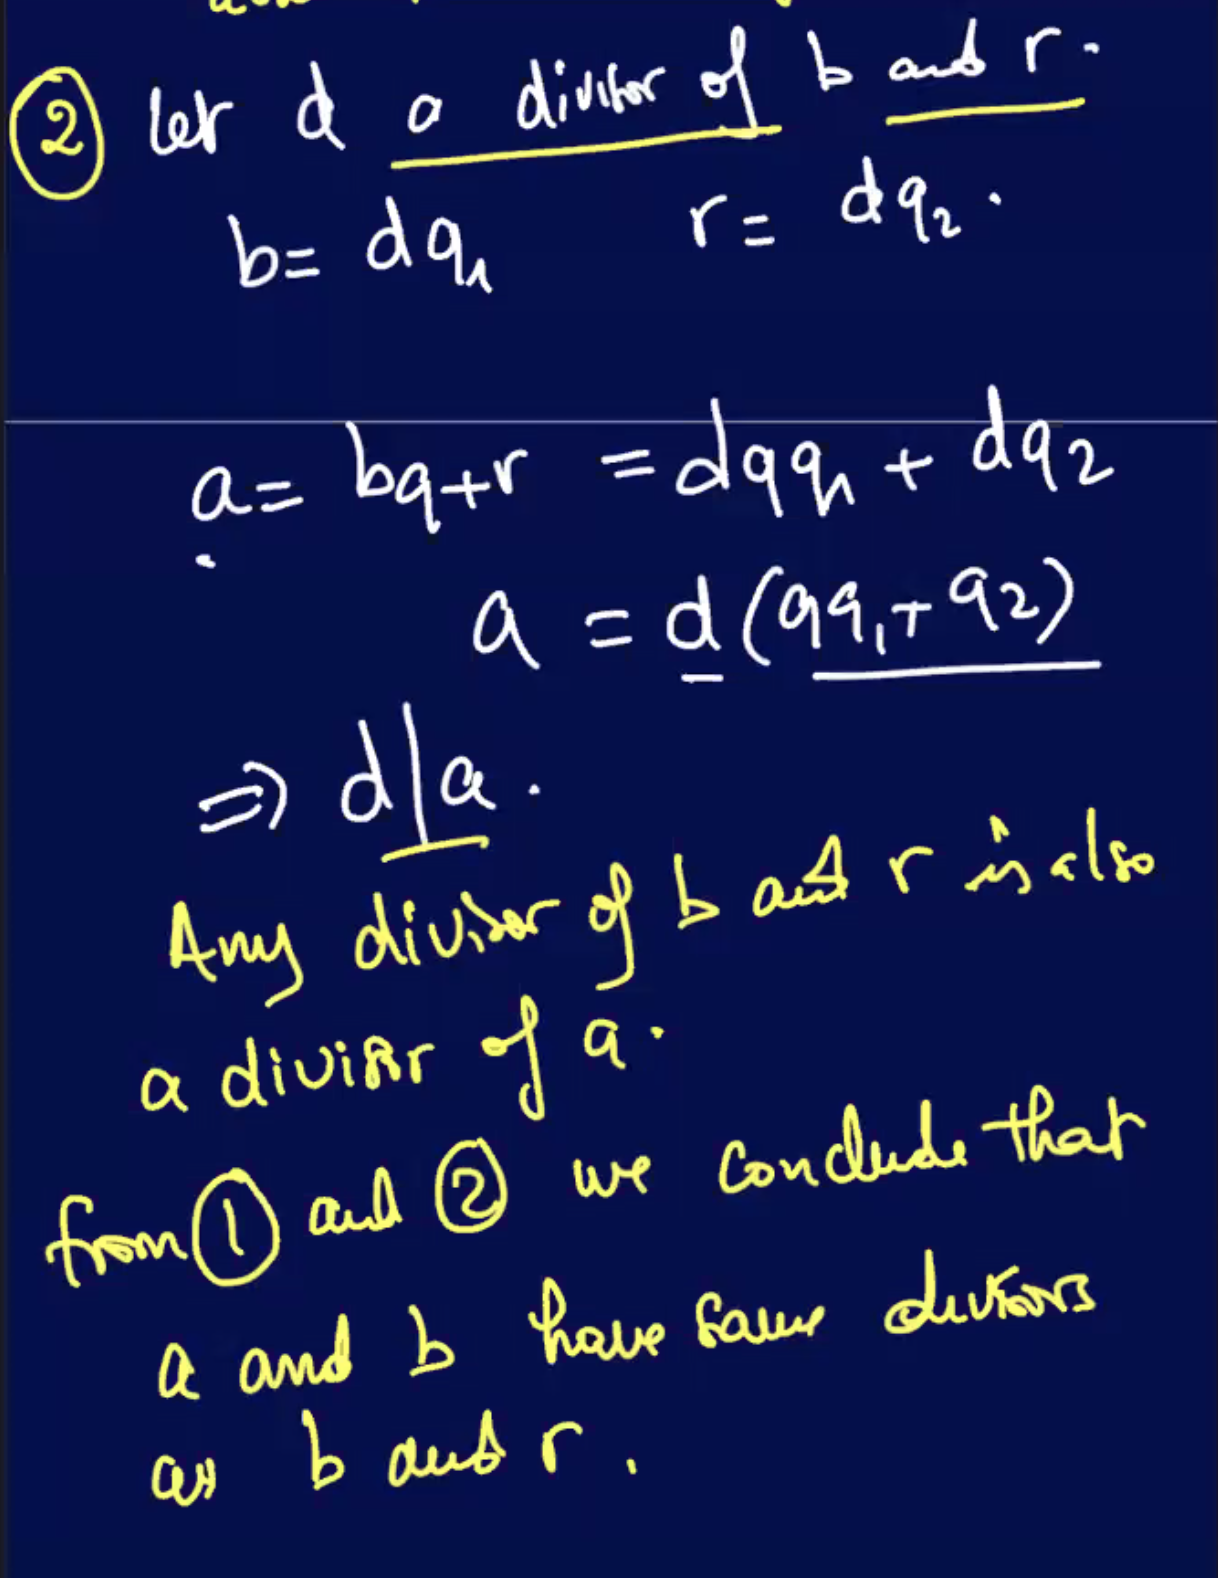 ② let d a divisor of b and r.
b = dq₁ r = dq₂.
a = bq+r = dqq₁ + dq₂
a = d(qq₁+q₂)
⇒ d|a.
Any divisor of b and r is also
a divisor of a.
from ① and ② we conclude that
a and b have same divisors
as b and r.